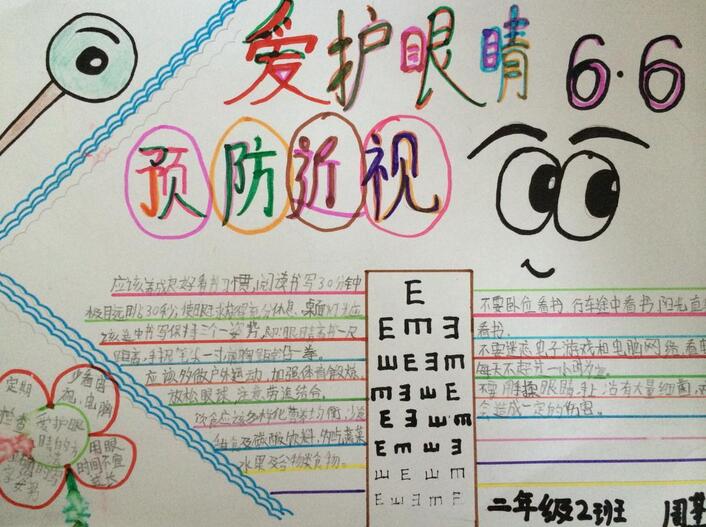 爱护眼睛 6.6
预防近视
应该养成良好看书习惯,阅读书写30分钟
极目远眺30秒,使眼球获得充分休息。桌面灯光应
该选书写保持三个一姿势,即眼睛离书一尺
距离,手握笔一寸,胸贴一拳。
应该多做户外运动,加强体育锻炼
放松眼球,注意劳逸结合。
饮食应该多样化,营养均衡,少
甜食及碳酸饮料,多吃蔬菜
水果及谷物类食物。
E
E E E
E E E
E E E E
E E E E
E E E E
E E E
E E E E
不要卧位看书,行车途中看书,阳光直
看书。
不要迷恋电子游戏和电脑网络,看电
每天不超过一小时为
不要用手揉眼睛,手上沾有大量细菌,
会造成一定的伤害。
少看电
视、电脑
定期
检查
爱护眼
睛的方
用眼
时间不宜
过长
二年级2班 周